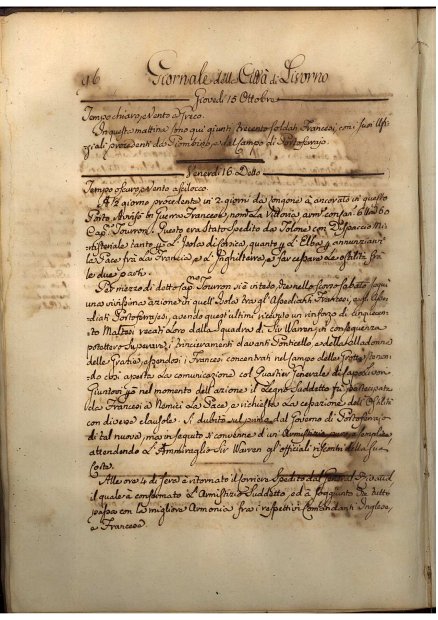 96 Giornale della Città di Livorno
Giovedì 15 Ottobre
Tempo chiaro, e Vento a Greco.
In questa mattina sono qui giunti trecento soldati Francesi, con i suoi Uffi-
ziali provenienti da Piombino, e dal Campo di Portoferrajo.
Venerdì 16 Detto
Tempo oscuro, e Vento a scilocco.
A 1/2 giorno procedente in 2 giorni da è ancorato in questo
Porto Avviso da Guerra Francese, nom. La Vittoria arm. con
Cap. Tourron. Questo era stato spedito da Tolone con Dispacci Mi-
nisteriali tanto p. l'Isola di Corsica, quanto p. l'Elba annunzianti
La Pace frà La Francia, e L'Inghilterra, e far cessare Le ostilità fra
le due parti.
Per mezzo di detto Cap. Tourron si è inteso, che nello scorso sabato seguì
una vivissima azione in quell'Isola tra gl'Assedianti Francesi, e gl'Asse-
diati Portoferrajesi, avendo quest'ultimi ricevuto un rinforzo di cinquecento
Maltesi recati loro dalla squadra di Sir Warren, in conseguenza
potettero superare i trinceramenti davanti Ponticello, e della Madonna
delle Grazie, essendosi i Francesi concentrati nel Campo delle Grotte
do così aperta la comunicazione col Quartier Generale di
Giuntovi p. nel momento dell'azione il Legno Suddetto fù partecipata
da Francesi a Nemici La Pace, e richiesta La cessazione dell'Ostilità
con diverse clausole. Si dubitò sul punto dal Governo di Portoferrajo
di tal nuova, ma in seguito si convenne d'un Armistizio puro, e semplice
attendendo L'Ammiraglio Sir Warren gl'officiali riscontri della sua
Corte.
Alle ore 4 di sera è ritornato il corriere spedito dal General
il quale à confermato L'Armistizio Suddetto, ed à soggiunto che tutto
passa con la migliore Armonia fra i respettivi Comandanti Inglese,
e Francese.